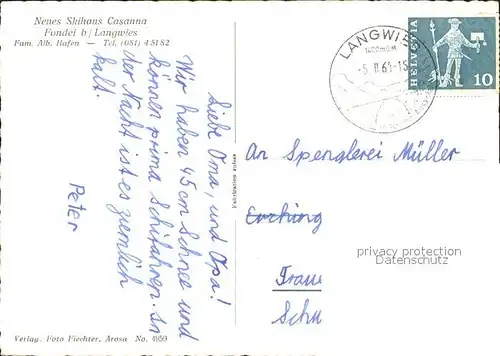 Neues Skihaus Casanna
Fondei b/Langwies
Fam. Alb. Hafen — Tel. (081) 4 51 82
Liebe Oma, und Opa!
Wir haben 45 cm Schnee und
können prima Schifahren. In
der Nacht ist es ziemlich
kalt.
Peter
Verlag. Foto Fiechter, Arosa No. 4959
Fabrication suisse
LANGWIES
-5. II 64-15
HELVETIA
10
An Spenglerei Müller
privacy protection
Datenschutz